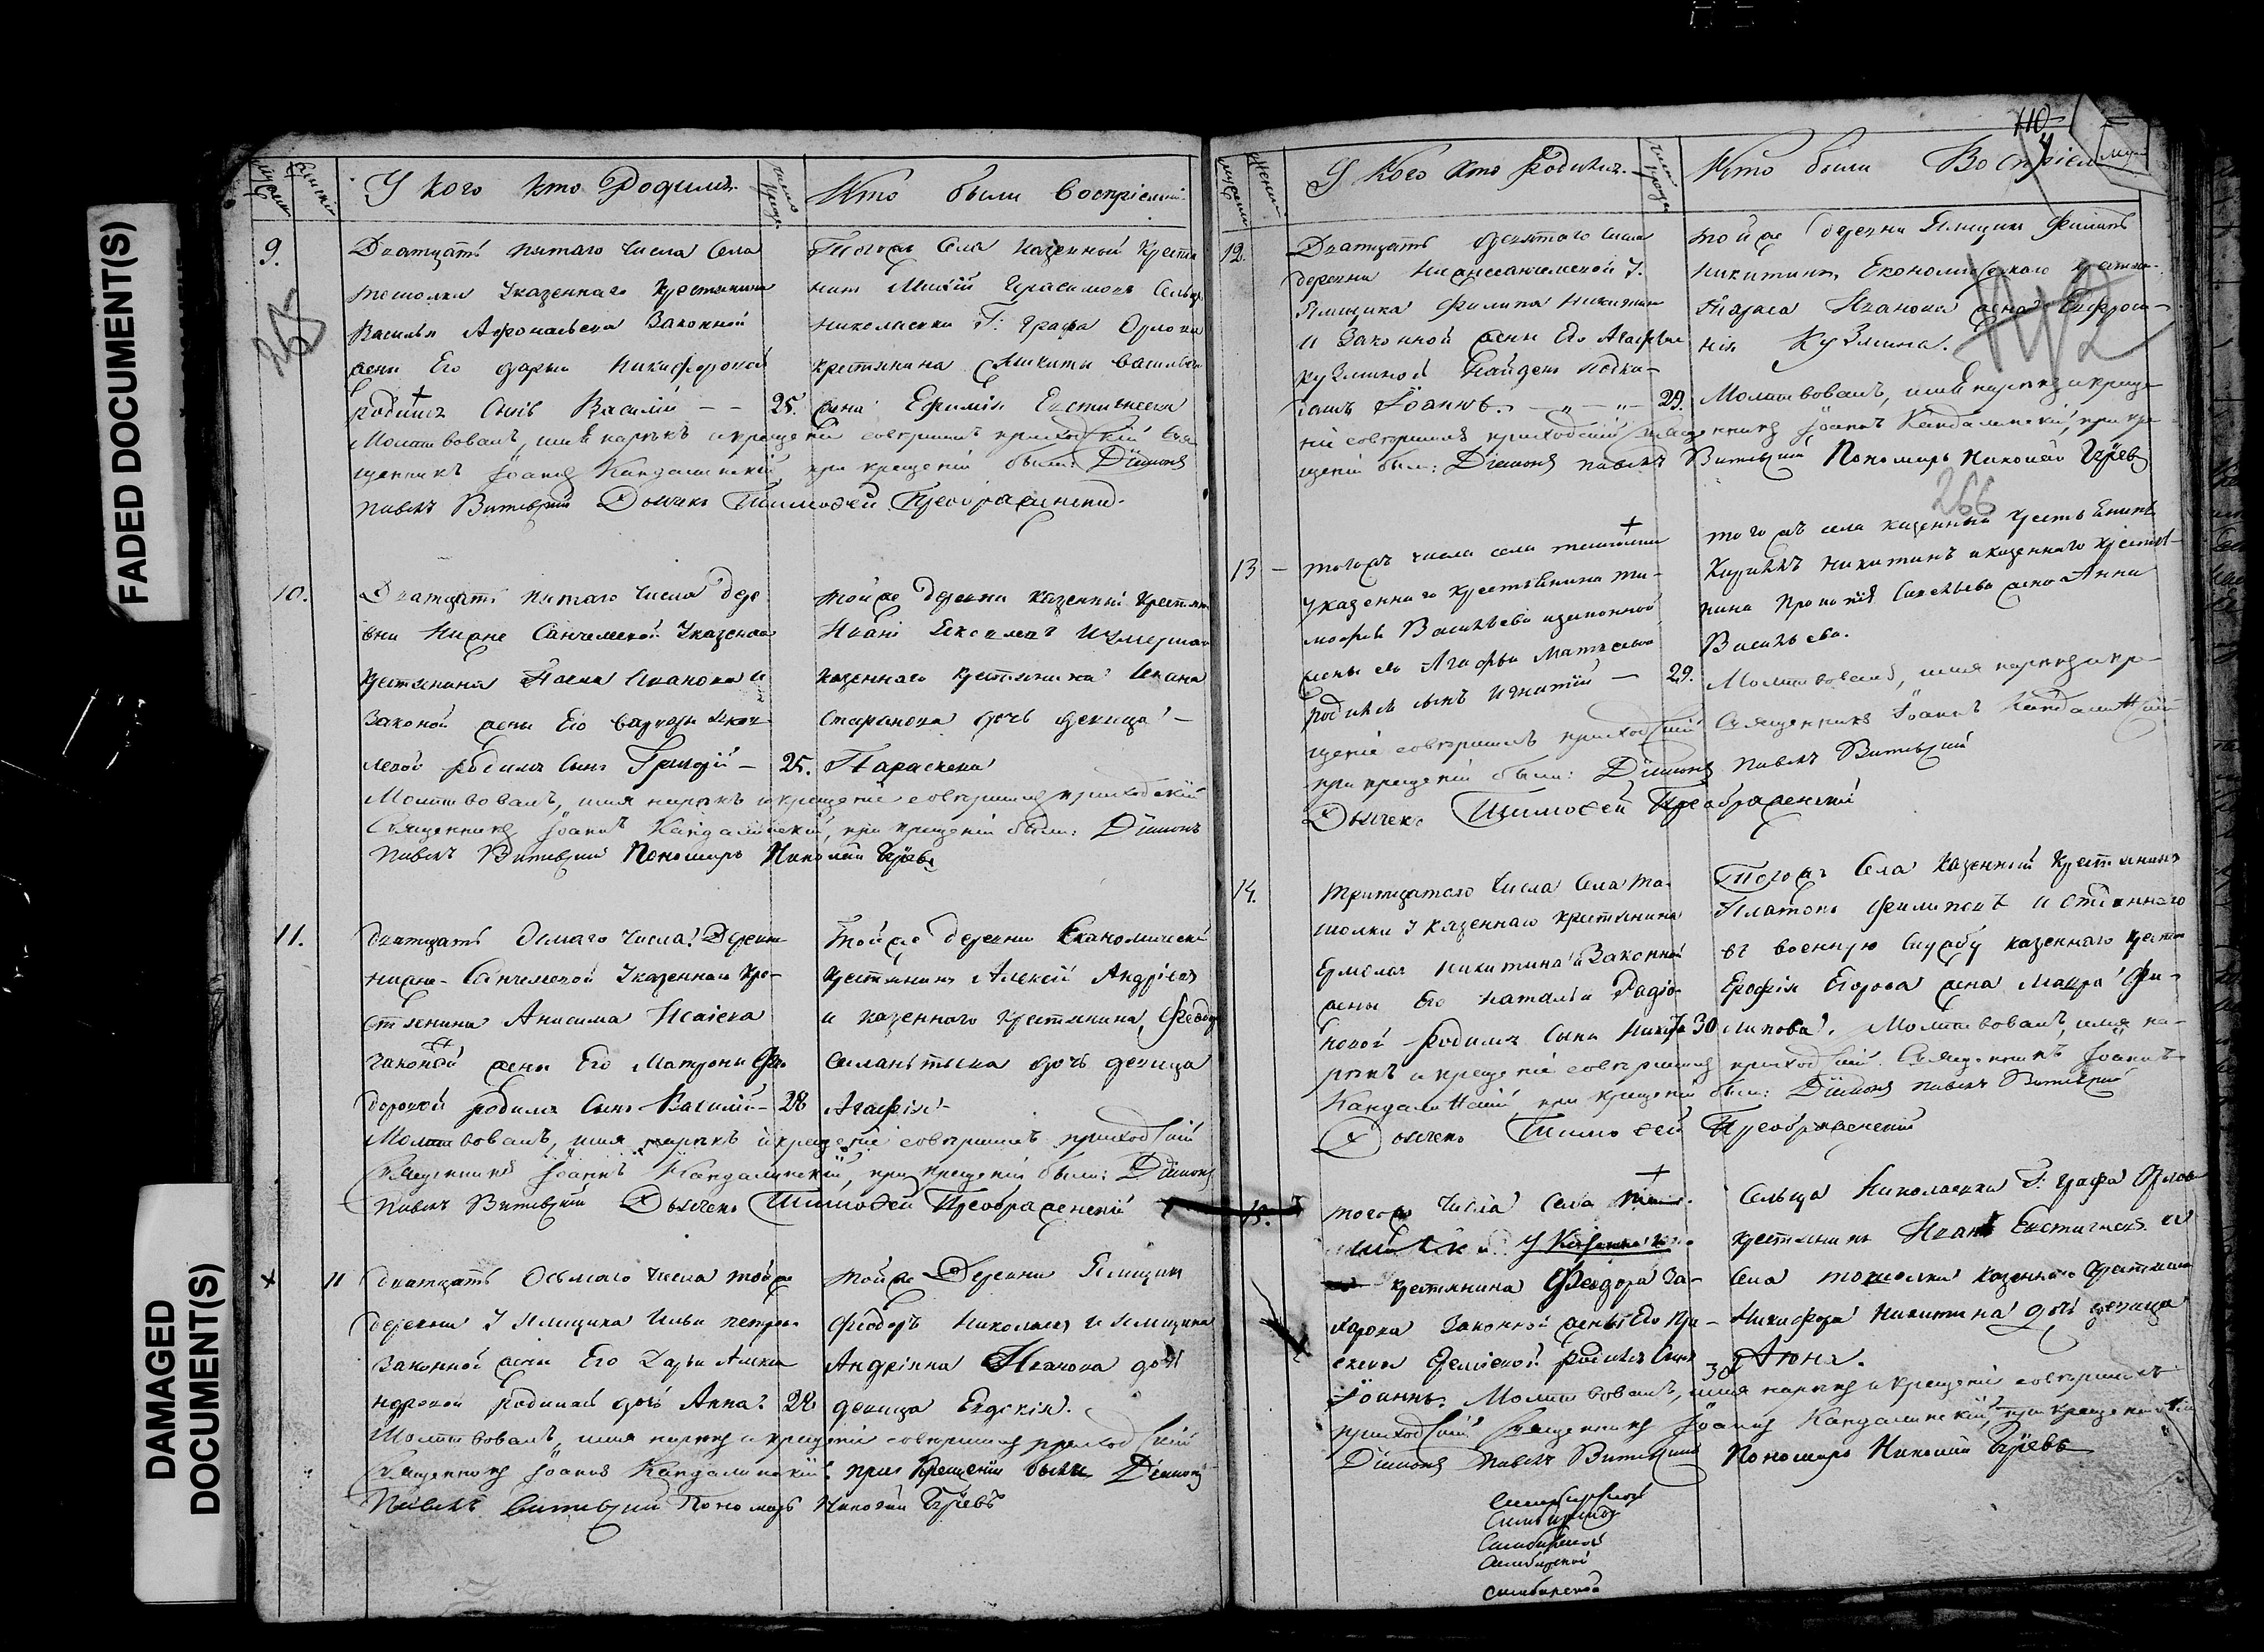 FADED DOCUMENT(S)
DAMAGED
DOCUMENT(S)
У кого кто Родился.
Кто были воспріемни
9.
265
Дватцать пятаго числа Села
тошолки Указеннаго Крестьянина
Василья Афонасьева Законной
жены Его дарьи Никифоровой
родился Сынъ Василій - - 25.
Тогожъ Села Казенный Крестья
нинъ Герасимовъ Сельца
николаевки Г. Графа Орлова
крестьянина Никиты васильева
жена Ефимія Евстигнеева
Молитвовалъ, имя нарекъ и крещеніе совершилъ приходскій Свя
щенникъ Іоаннъ Кандалинскій при крещеніи были: Діаконъ
павелъ Витевскій Дьячекъ Тимофей Преображенскій.
10.
Дватцать пятаго числа дере
вни Ниже Санчелеевой Указенаго
крестьянина Иванова и
Законой жены Его варвары Яков
левой родился Сынъ Григорій - 25.
тойже деревни казенный крестьян
Иванъ и умершаго
казеннаго крестьянина Ивана
Стафанова дочь девица -
Параскева
Молитвовалъ, имя нарекъ и крещеніе совершилъ приходскій
Священникъ Іоаннъ Кандалинскій, при крещеніи были: Діаконъ
павелъ Витевскій Пономарь Николай
11.
дватцать Осмаго числа Деревни
ниже-Санчелеевой Указеннаго кре-
стьянина Анисима Исаіева
законой жены Его Матроны Фео
доровой родился Сынъ Василій - 28
Тойже деревни Економическій
крестьянинъ Алексій Андріевъ
и казеннаго крестьянина Федора
Силантьева дочь девица
Агафія
Молитвовалъ, имя нарекъ и крещеніе совершилъ приходскій
Священникъ Іоаннъ Кандалинскій, при крещеніи были: Діаконъ
павелъ Витевскій Дьячекъ Тимофей Преображенскій
11
дватцать Осьмаго числа тойже
деревни У Ямщика Ильи петрова
Законной жены Его Дарьи Алекса
ндровой родилась дочь Анна. 28
тойже Деревни Ямщикъ
Феодоръ Николаевъ и Ямщика
Андріяна Иванова дочь
девица Евдокія.
Молитвовалъ, имя нарекъ и крещеніе совершилъ приходскій
Священникъ Іоаннъ Кандалинскій: при Крещеніи были Діаконъ
Павелъ Витевскій Пономарь Николай
110
У Кого Кто Родился.
Кто были Воспріем
12.
Дватцать девятаго числа
деревни Нижесанчелеевой У
Ямщика Филипа Никитина
и Законной жены Его Агафьи
кузминой Найденъ подки-
дышъ Іоаннъ. - 29.
тойже деревни Ямщикъ Филипъ
Никитинъ Економическаго крестьян
Тараса Иванова жена Евфроси-
нія Кузмина.
Молитвовалъ, имя нарекъ и креще-
ніе совершилъ приходскій священникъ Іоаннъ Кандалинскій, при кре-
щеніи были: Діаконъ павелъ Витевскій Пономарь Николай
266
13 -
тогожъ числа села тошолки
Указеннаго крестьянина ти-
мофея Васильева изаконной
жены его Агафьи Матвеевой
родился сынъ Игнатій - 29.
тогожъ села казенный крестьянинъ
Никитинъ иказеннаго крестья-
нина Прокопія Савельева жена Анна
Васильева.
Молитвовалъ, имя нарекъ и кре-
щеніе совершилъ приходскій Священникъ Іоаннъ Кандалинскій
при крещеніи были: Діаконъ павелъ Витевскій
Дьячекъ Тимофей Преображенскій
14.
тритцатаго числа Села то-
шолки Указеннаго крестьянина
Ермолая Никитина и Законной
жены Его Натальи Радіо-
новой родился Сынъ Никита 30
Тогожъ Села казенный крестьянинъ
Платонъ Филиповъ и отданнаго
въ военную Службу казеннаго крестьян
Ерофея Егорова жена Мавра Фи-
липова. Молитвовалъ, имя на-
рекъ и крещеніе совершилъ приходскій Священникъ Іоаннъ
Кандалинскій, при крещеніи были: Діаконъ павелъ Витевскій
Дьячекъ Тимофей Преображенскій
15.
тогожъ Числа Села
крестьянина Феодора За-
харова Законной жены Его
родился Сынъ
Іоаннъ. 30
Сельца Николаевки Г. Графа Орлова
крестьянинъ Иванъ Евстигнеевъ и
Села тошолки казеннаго крестьянина
Никифора Никитина дочь девица
Молитвовалъ, имя нарекъ и крещеніе совершилъ
приходскій Священникъ Іоаннъ Кандалинскій, при крещеніи были
Діаконъ павелъ Витевскій Пономарь Николай
Симбирской
Симбирской
Симбирской
Симбирской
Симбирской